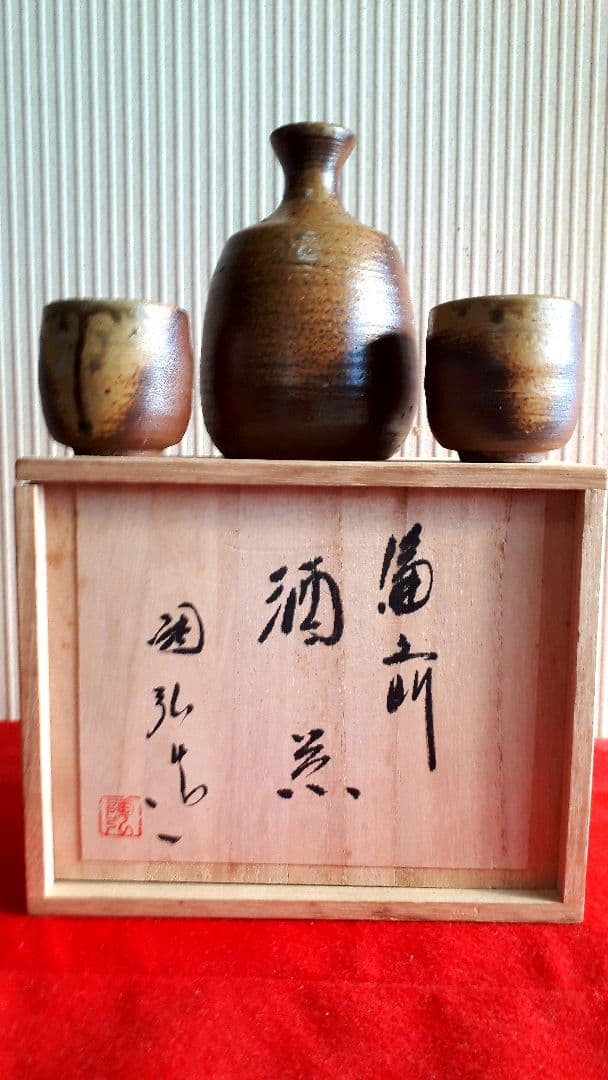 備前
酒器
弘造